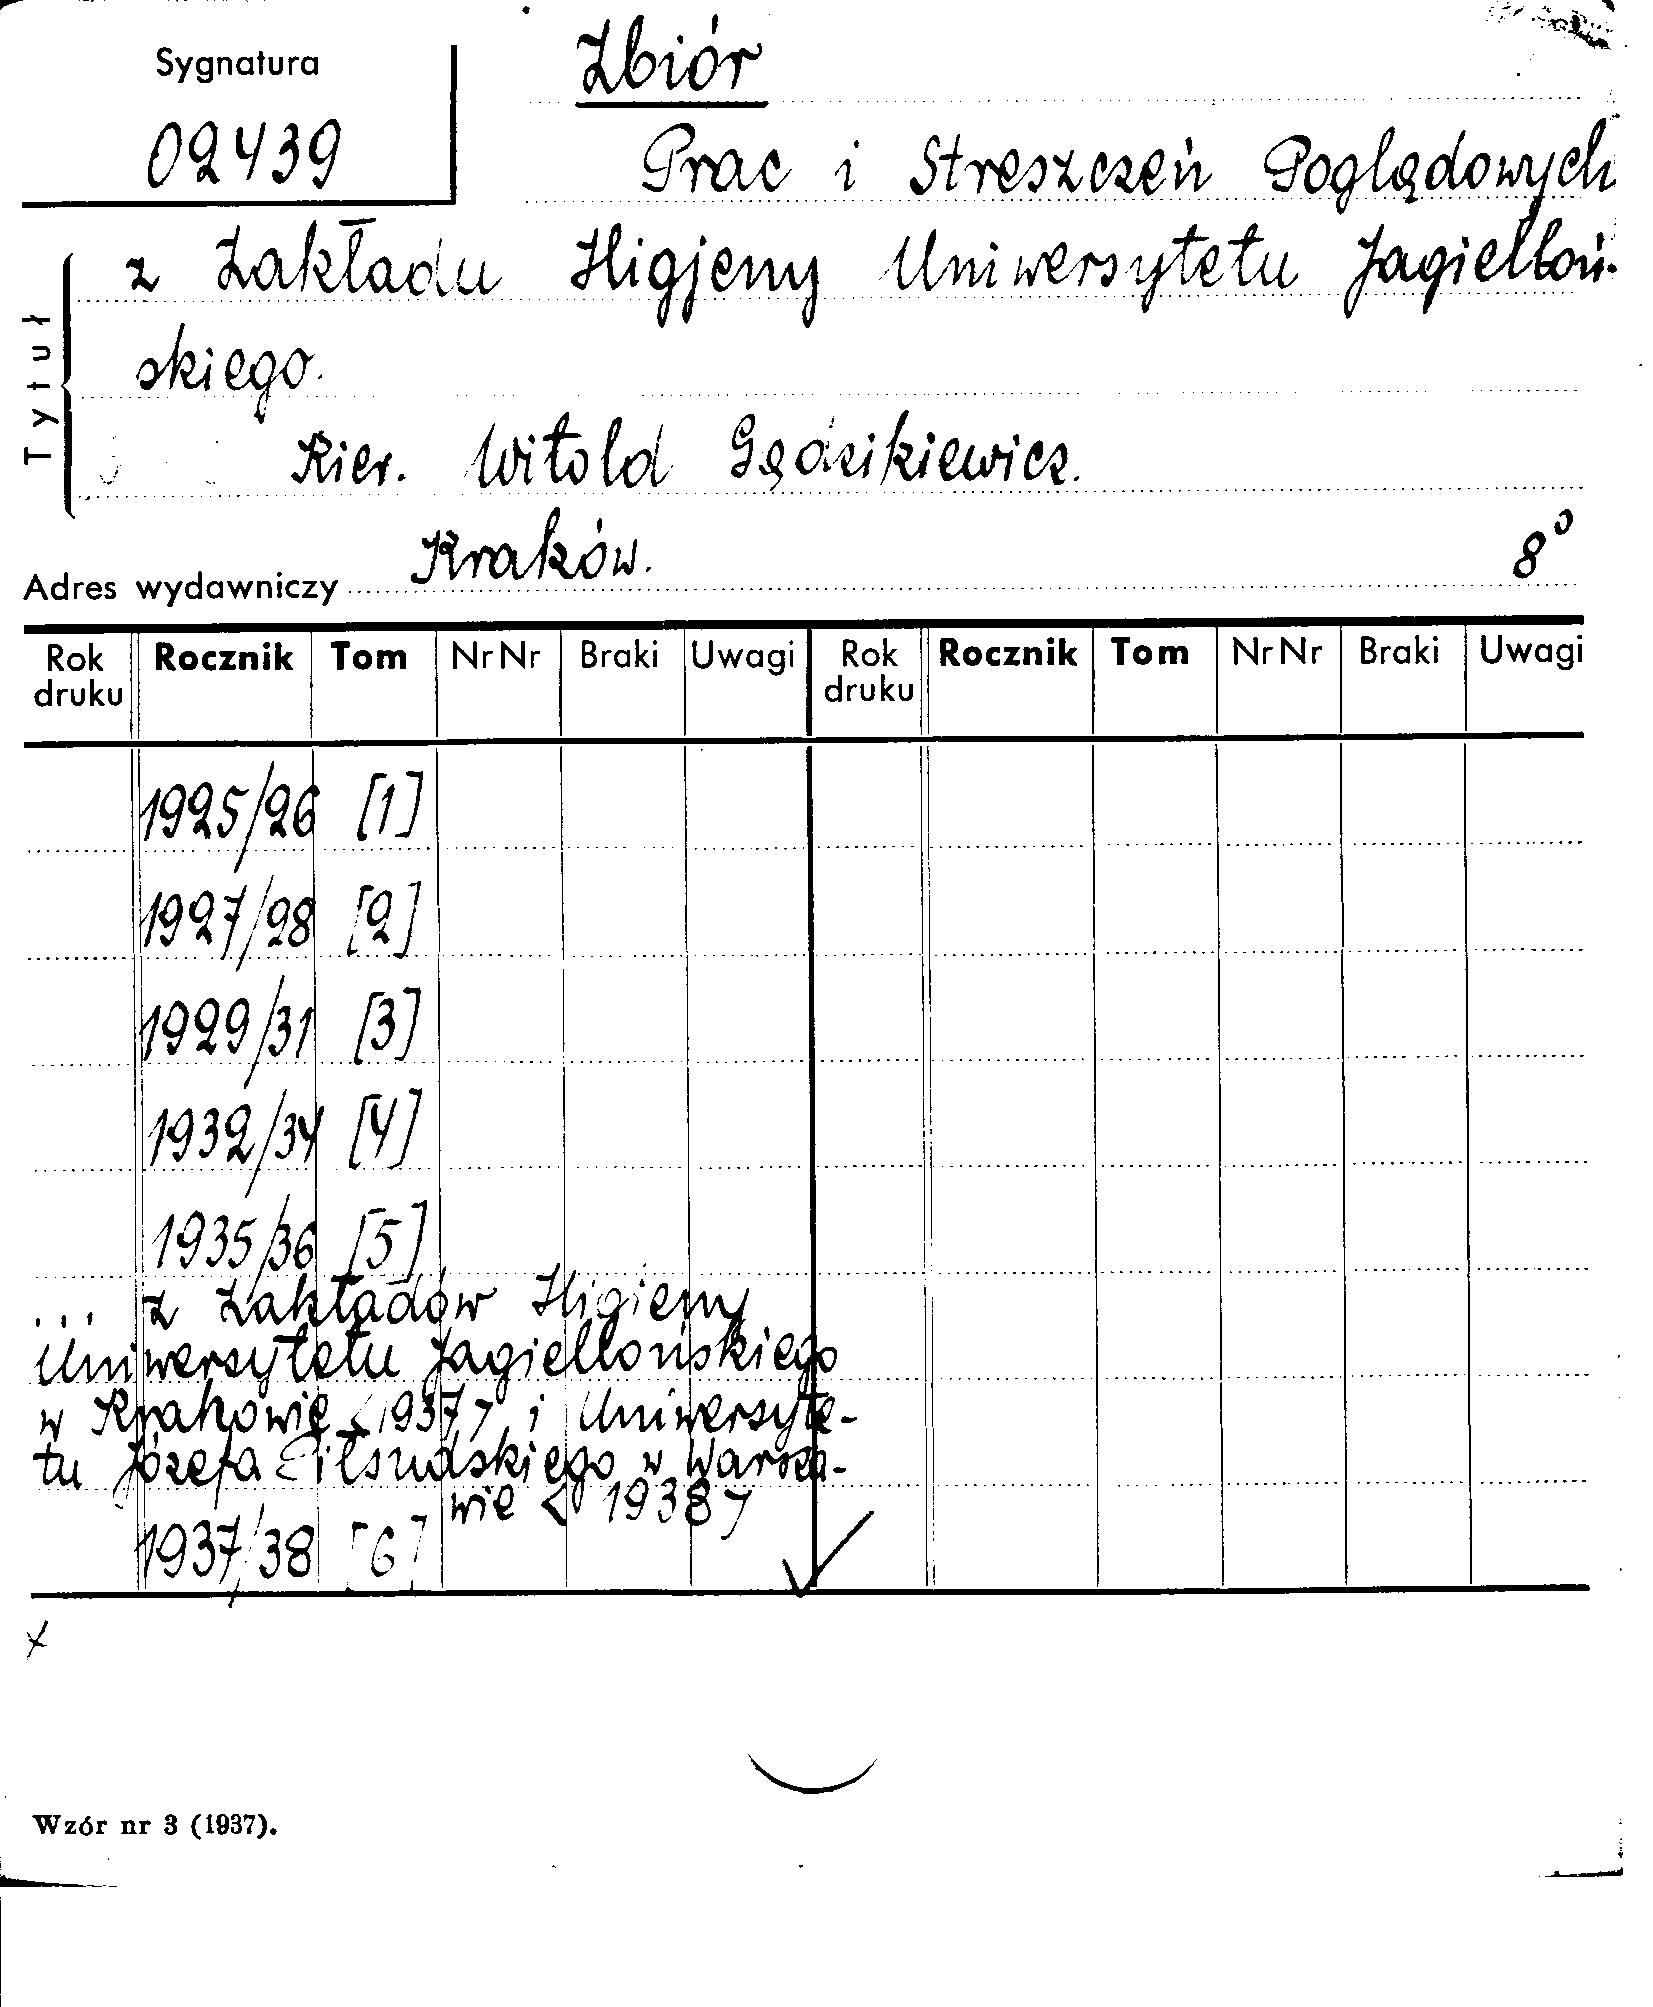 Sygnatura
02439
Zbiór
Prac i Streszczeń Poglądowych
z Zakładu Higjeny Uniwersytetu Jagielloń-
skiego.
Kier. Witold Gądzikiewicz.
Tytuł
Kraków. 8°
Adres wydawniczy
Rok druku Rocznik Tom NrNr Braki Uwagi Rok druku Rocznik Tom NrNr Braki Uwagi
1925/26 [1]
1927/28 [2]
1929/31 [3]
1932/34 [4]
1935/36 [5]
... z Zakładów Higieny
Uniwersytetu Jagiellońskiego
w Krakowie <1937> i Uniwersyte-
tu Józefa Piłsudskiego w Warsza-
wie <1938>
1937/38 [6]
x
Wzór nr 3 (1937).